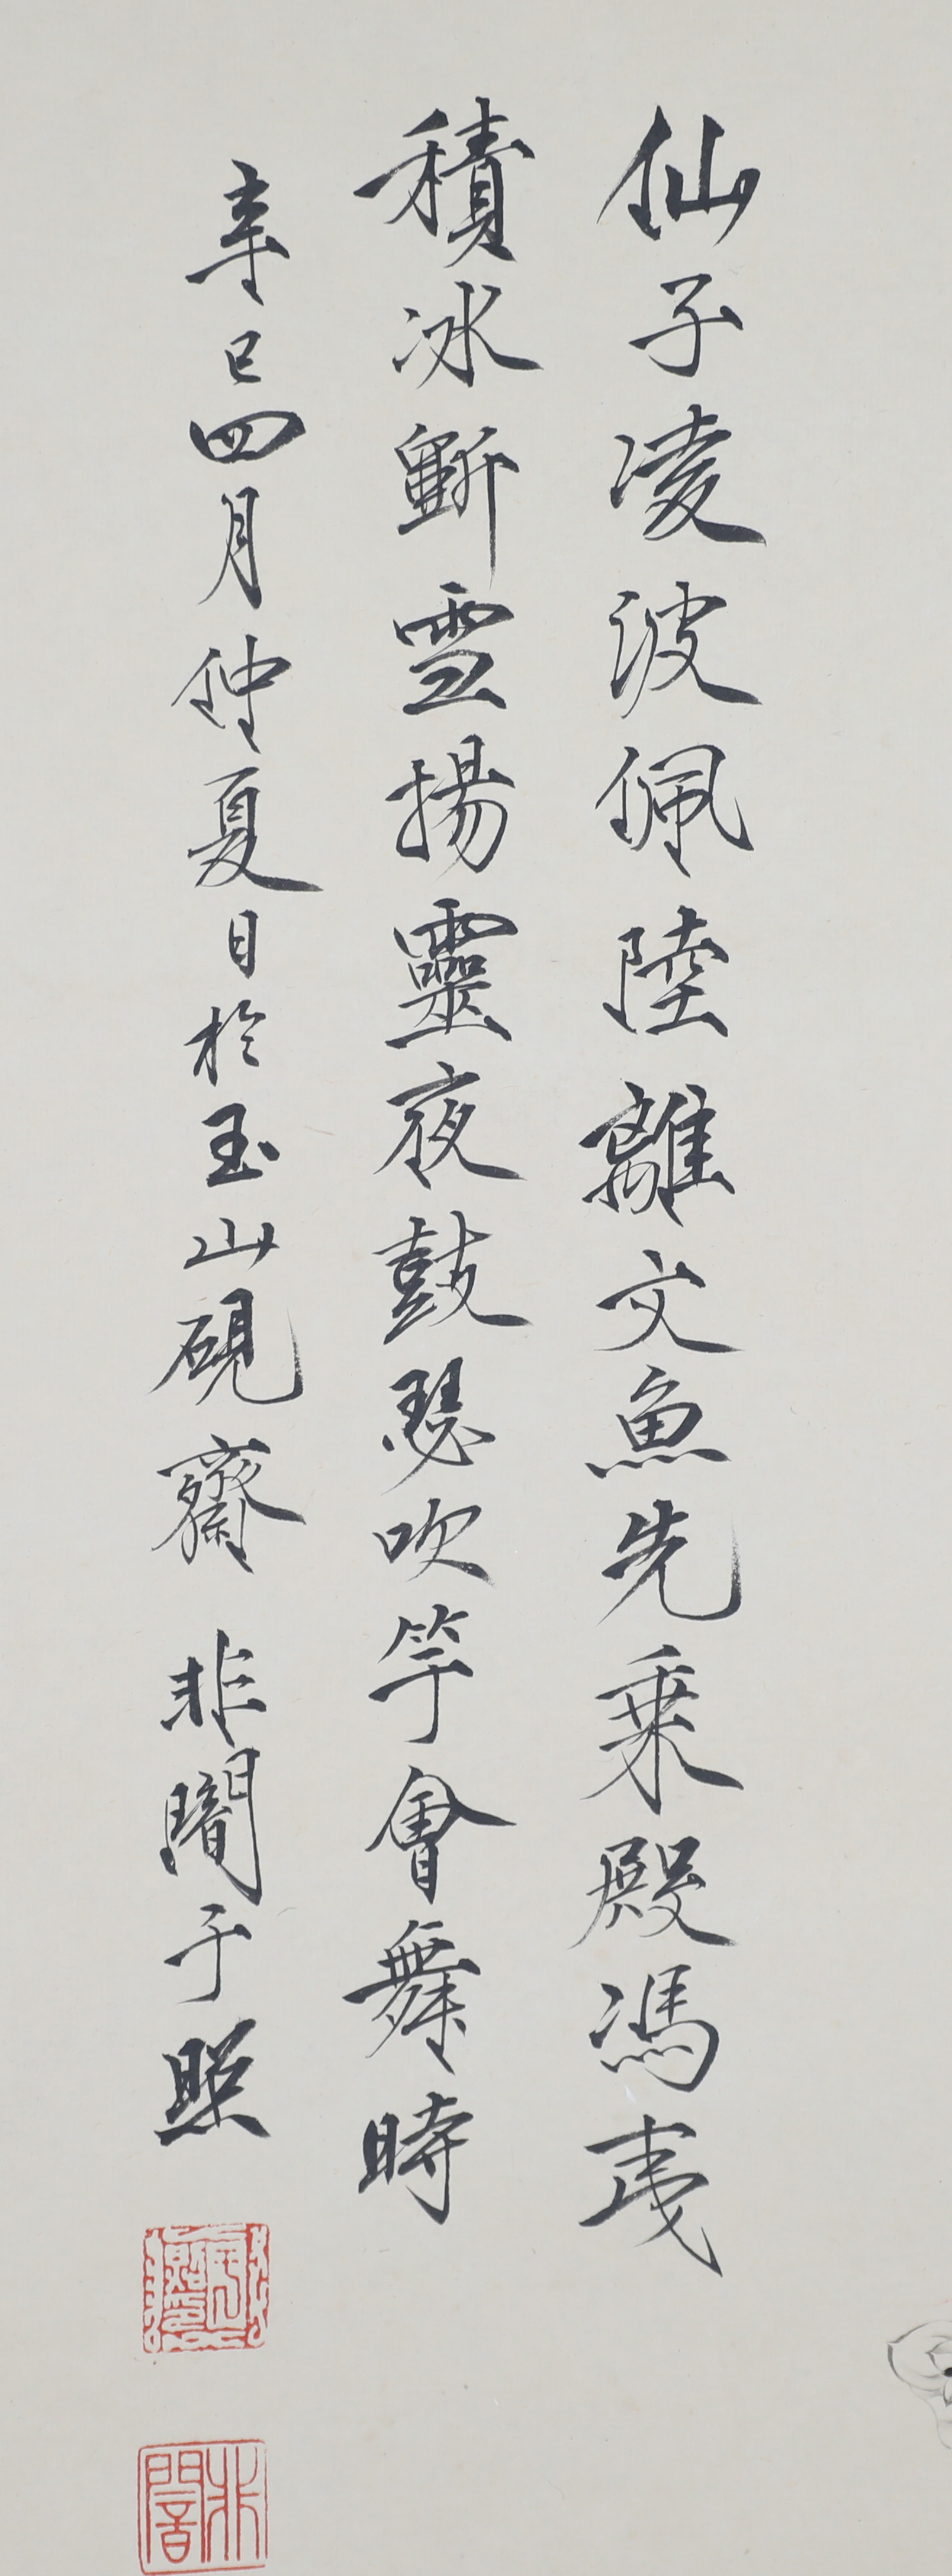 仙子凌波佩陸離文魚先乗殿馮夷
積冰斲雪揚靈夜鼓瑟吹竽會舞時
辛巳四月仲夏日於玉山硯齋 非闇于照
非闇